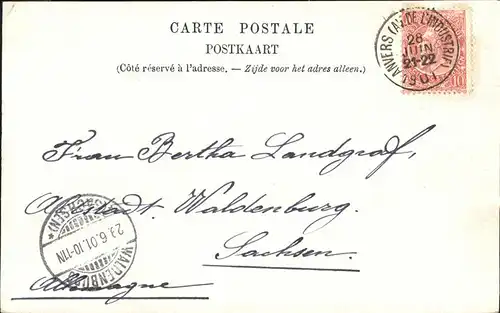 CARTE POSTALE
POSTKAART
(Côté réservé à l'adresse. — Zijde voor het adres alleen.)
ANVERS (AV. DE L'INDUSTRIE)
28
JUIN
21-22
1901
10
Frau Bertha Landgraf,
Altstadt. Waldenburg.
Sachsen.
Allemagne
WALDENBURG (SACHSEN)
29.6.01.10-11N